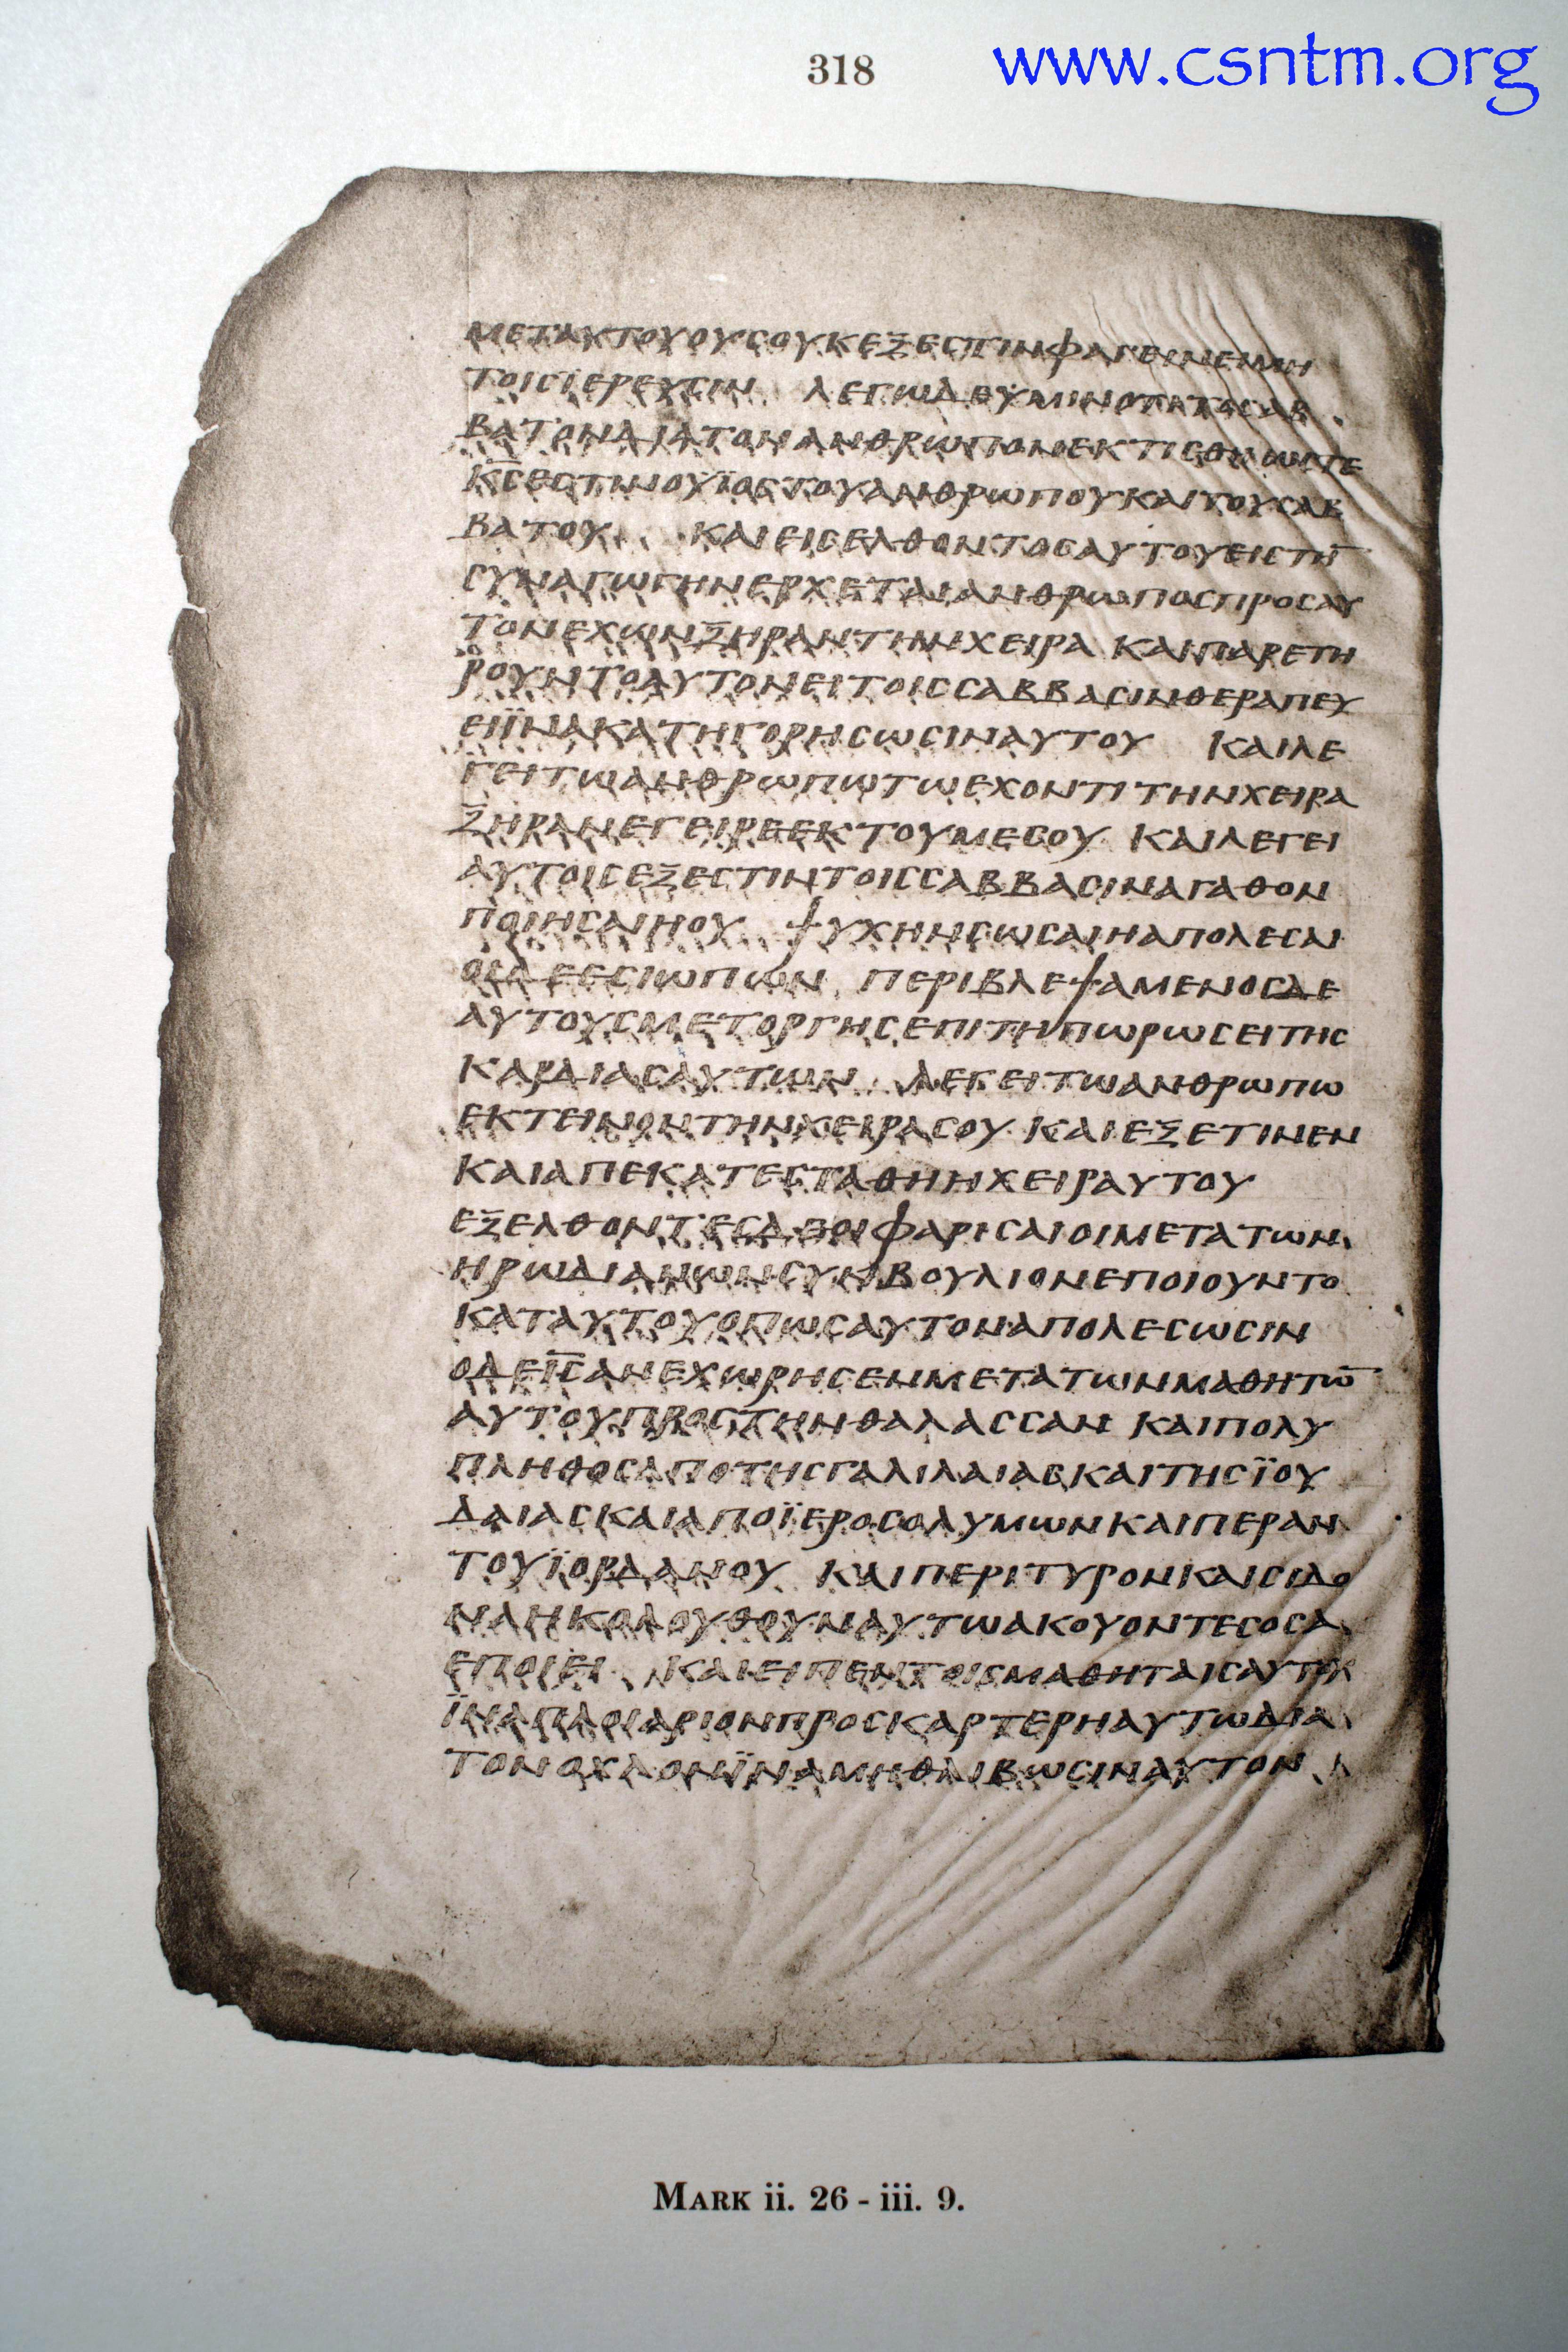 318
www.csntm.org
ΜΕΤΑΥΤΟΥΟΥϹΟΥΚΕΞΕϹΤΙΝΦΑΓΕΙΝΕΙΜΗ
ΤΟΙϹΙΕΡΕΥϹΙΝ ΛΕΓΩΔΕΫΜΙΝΟΤΙΤΟϹΑΒ
ΒΑΤΟΝΔΙΑΤΟΝΑΝΘΡΩΠΟΝΕΚΤΙϹΘΗΩϹΤΕ
Κ̅Ϲ̅ΕϹΤΙΝΟΥΪΟϹΤΟΥΑΝΘΡΩΠΟΥΚΑΙΤΟΥϹΑΒ
ΒΑΤΟΥ ΚΑΙΕΙϹΕΛΘΟΝΤΟϹΑΥΤΟΥΕΙϹΤΗ̅
ϹΥΝΑΓΩΓΗΝΕΡΧΕΤΑΙΑΝΘΡΩΠΟϹΠΡΟϹΑΥ
ΤΟΝΕΧΩΝΞΗΡΑΝΤΗΝΧΕΙΡΑ ΚΑΙΠΑΡΕΤΗ
ΡΟΥΝΤΟΑΥΤΟΝΕΙΤΟΙϹϹΑΒΒΑϹΙΝΘΕΡΑΠΕΥ
ΕΙΪΝΑΚΑΤΗΓΟΡΗϹΩϹΙΝΑΥΤΟΥ ΚΑΙΛΕ
ΓΕΙΤΩΑΝΘΡΩΠΩΤΩΕΧΟΝΤΙΤΗΝΧΕΙΡΑ
ΞΗΡΑΝΕΓΕΙΡΕΕΚΤΟΥΜΕϹΟΥ ΚΑΙΛΕΓΕΙ
ΑΥΤΟΙϹΕΞΕϹΤΙΝΤΟΙϹϹΑΒΒΑϹΙΝΑΓΑΘΟΝ
ΠΟΙΗϹΑΙΗΟΥ ΨΥΧΗΝϹΩϹΑΙΗΑΠΟΛΕϹΑΙ
ΟΙΔΕΕϹΙΩΠΩΝ ΠΕΡΙΒΛΕΨΑΜΕΝΟϹΔΕ
ΑΥΤΟΥϹΜΕΤΟΡΓΗϹΕΠΙΤΗΠΩΡΩϹΕΙΤΗϹ
ΚΑΡΔΙΑϹΑΥΤΩΝ ΛΕΓΕΙΤΩΑΝΘΡΩΠΩ
ΕΚΤΕΙΝΟΝΤΗΝΧΕΙΡΑϹΟΥ ΚΑΙΕΞΕΤΙΝΕΝ
ΚΑΙΑΠΕΚΑΤΕϹΤΑΘΗΗΧΕΙΡΑΥΤΟΥ
ΕΞΕΛΘΟΝΤΕϹΔΕΟΙΦΑΡΙϹΑΙΟΙΜΕΤΑΤΩΝ
ΗΡΩΔΙΑΝΩΝϹΥΝΒΟΥΛΙΟΝΕΠΟΙΟΥΝΤΟ
ΚΑΤΑΥΤΟΥΟΠΩϹΑΥΤΟΝΑΠΟΛΕϹΩϹΙΝ
ΟΔΕΙ̅Ϲ̅ΑΝΕΧΩΡΗϹΕΝΜΕΤΑΤΩΝΜΑΘΗΤΩ̅
ΑΥΤΟΥΠΡΟϹΤΗΝΘΑΛΑϹϹΑΝ ΚΑΙΠΟΛΥ
ΠΛΗΘΟϹΑΠΟΤΗϹΓΑΛΙΛΑΙΑϹΚΑΙΤΗϹΪΟΥ
ΔΑΙΑϹΚΑΙΑΠΟΪΕΡΟϹΟΛΥΜΩΝΚΑΙΠΕΡΑΝ
ΤΟΥΪΟΡΔΑΝΟΥ ΚΑΙΠΕΡΙΤΥΡΟΝΚΑΙϹΙΔΟ
ΝΑΗΚΟΛΟΥΘΟΥΝΑΥΤΩΑΚΟΥΟΝΤΕϹΟϹΑ
ΕΠΟΙΕΙ ΚΑΙΕΙΠΕΝΤΟΙϹΜΑΘΗΤΑΙϹΑΥΤΟΥ
ΪΝΑΠΛΟΙΑΡΙΟΝΠΡΟϹΚΑΡΤΕΡΗΑΥΤΩΔΙΑ
ΤΟΝΟΧΛΟΝΪΝΑΜΗΘΛΙΒΩϹΙΝΑΥΤΟΝ
MARK ii. 26 - iii. 9.